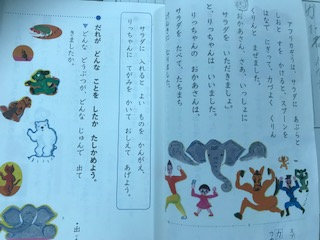 アフリカぞうは、サラダに あぶらと
しおと すを かけると、スプーンを
はなで にぎって、力づよく くりん
くりんと まぜました。
「おかあさん、さあ、いっしょに
サラダを いただきましょう。」
と、りっちゃんは いいました。
りっちゃんの おかあさんは、
サラダを たべて、たちまち
サラダに 入れると よい ものを かんがえ、
りっちゃんに てがみを かいて おしえて あげよう。
●だれが どんな ことを したか たしかめよう。
▼どんな どうぶつが、どんな じゅんで 出て
きましたか。
・出